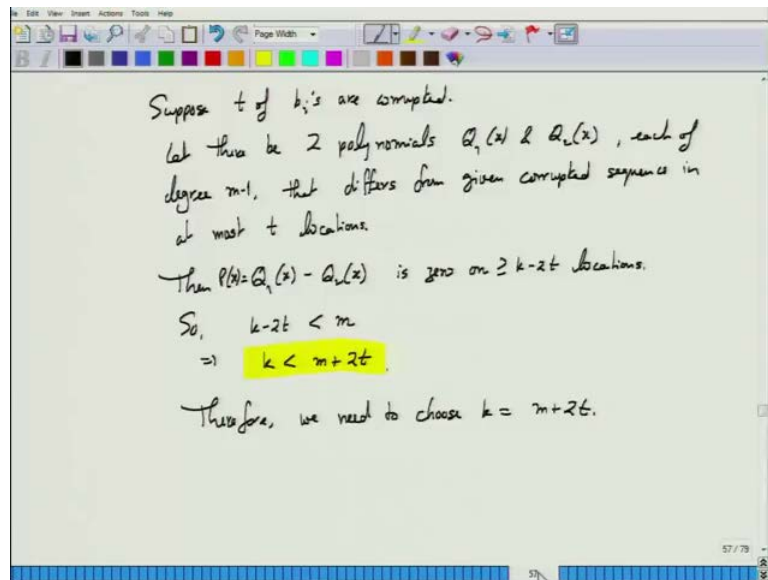 Edit View Insert Actions Tools Help
Page Width
Suppose t of bᵢ's are corrupted.
Let there be 2 polynomials Q₁(x) & Q₂(x), each of
degree m-1, that differs from given corrupted sequence in
at most t locations.
Then P(x)=Q₁(x) - Q₂(x) is zero on ≥ k-2t locations.
So, k-2t < m
⇒ k < m+2t.
Therefore, we need to choose k = m+2t.
57/79
57